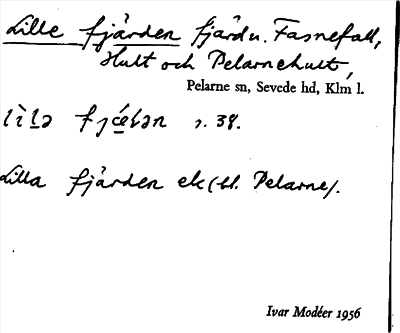 Lille fjärden fjärd u. Fasnefall,
Hult och Pelarnehult,
Pelarne sn, Sevede hd, Klm l.
Lilla fjärden ek (bl. Pelarne).
Ivar Modéer 1956